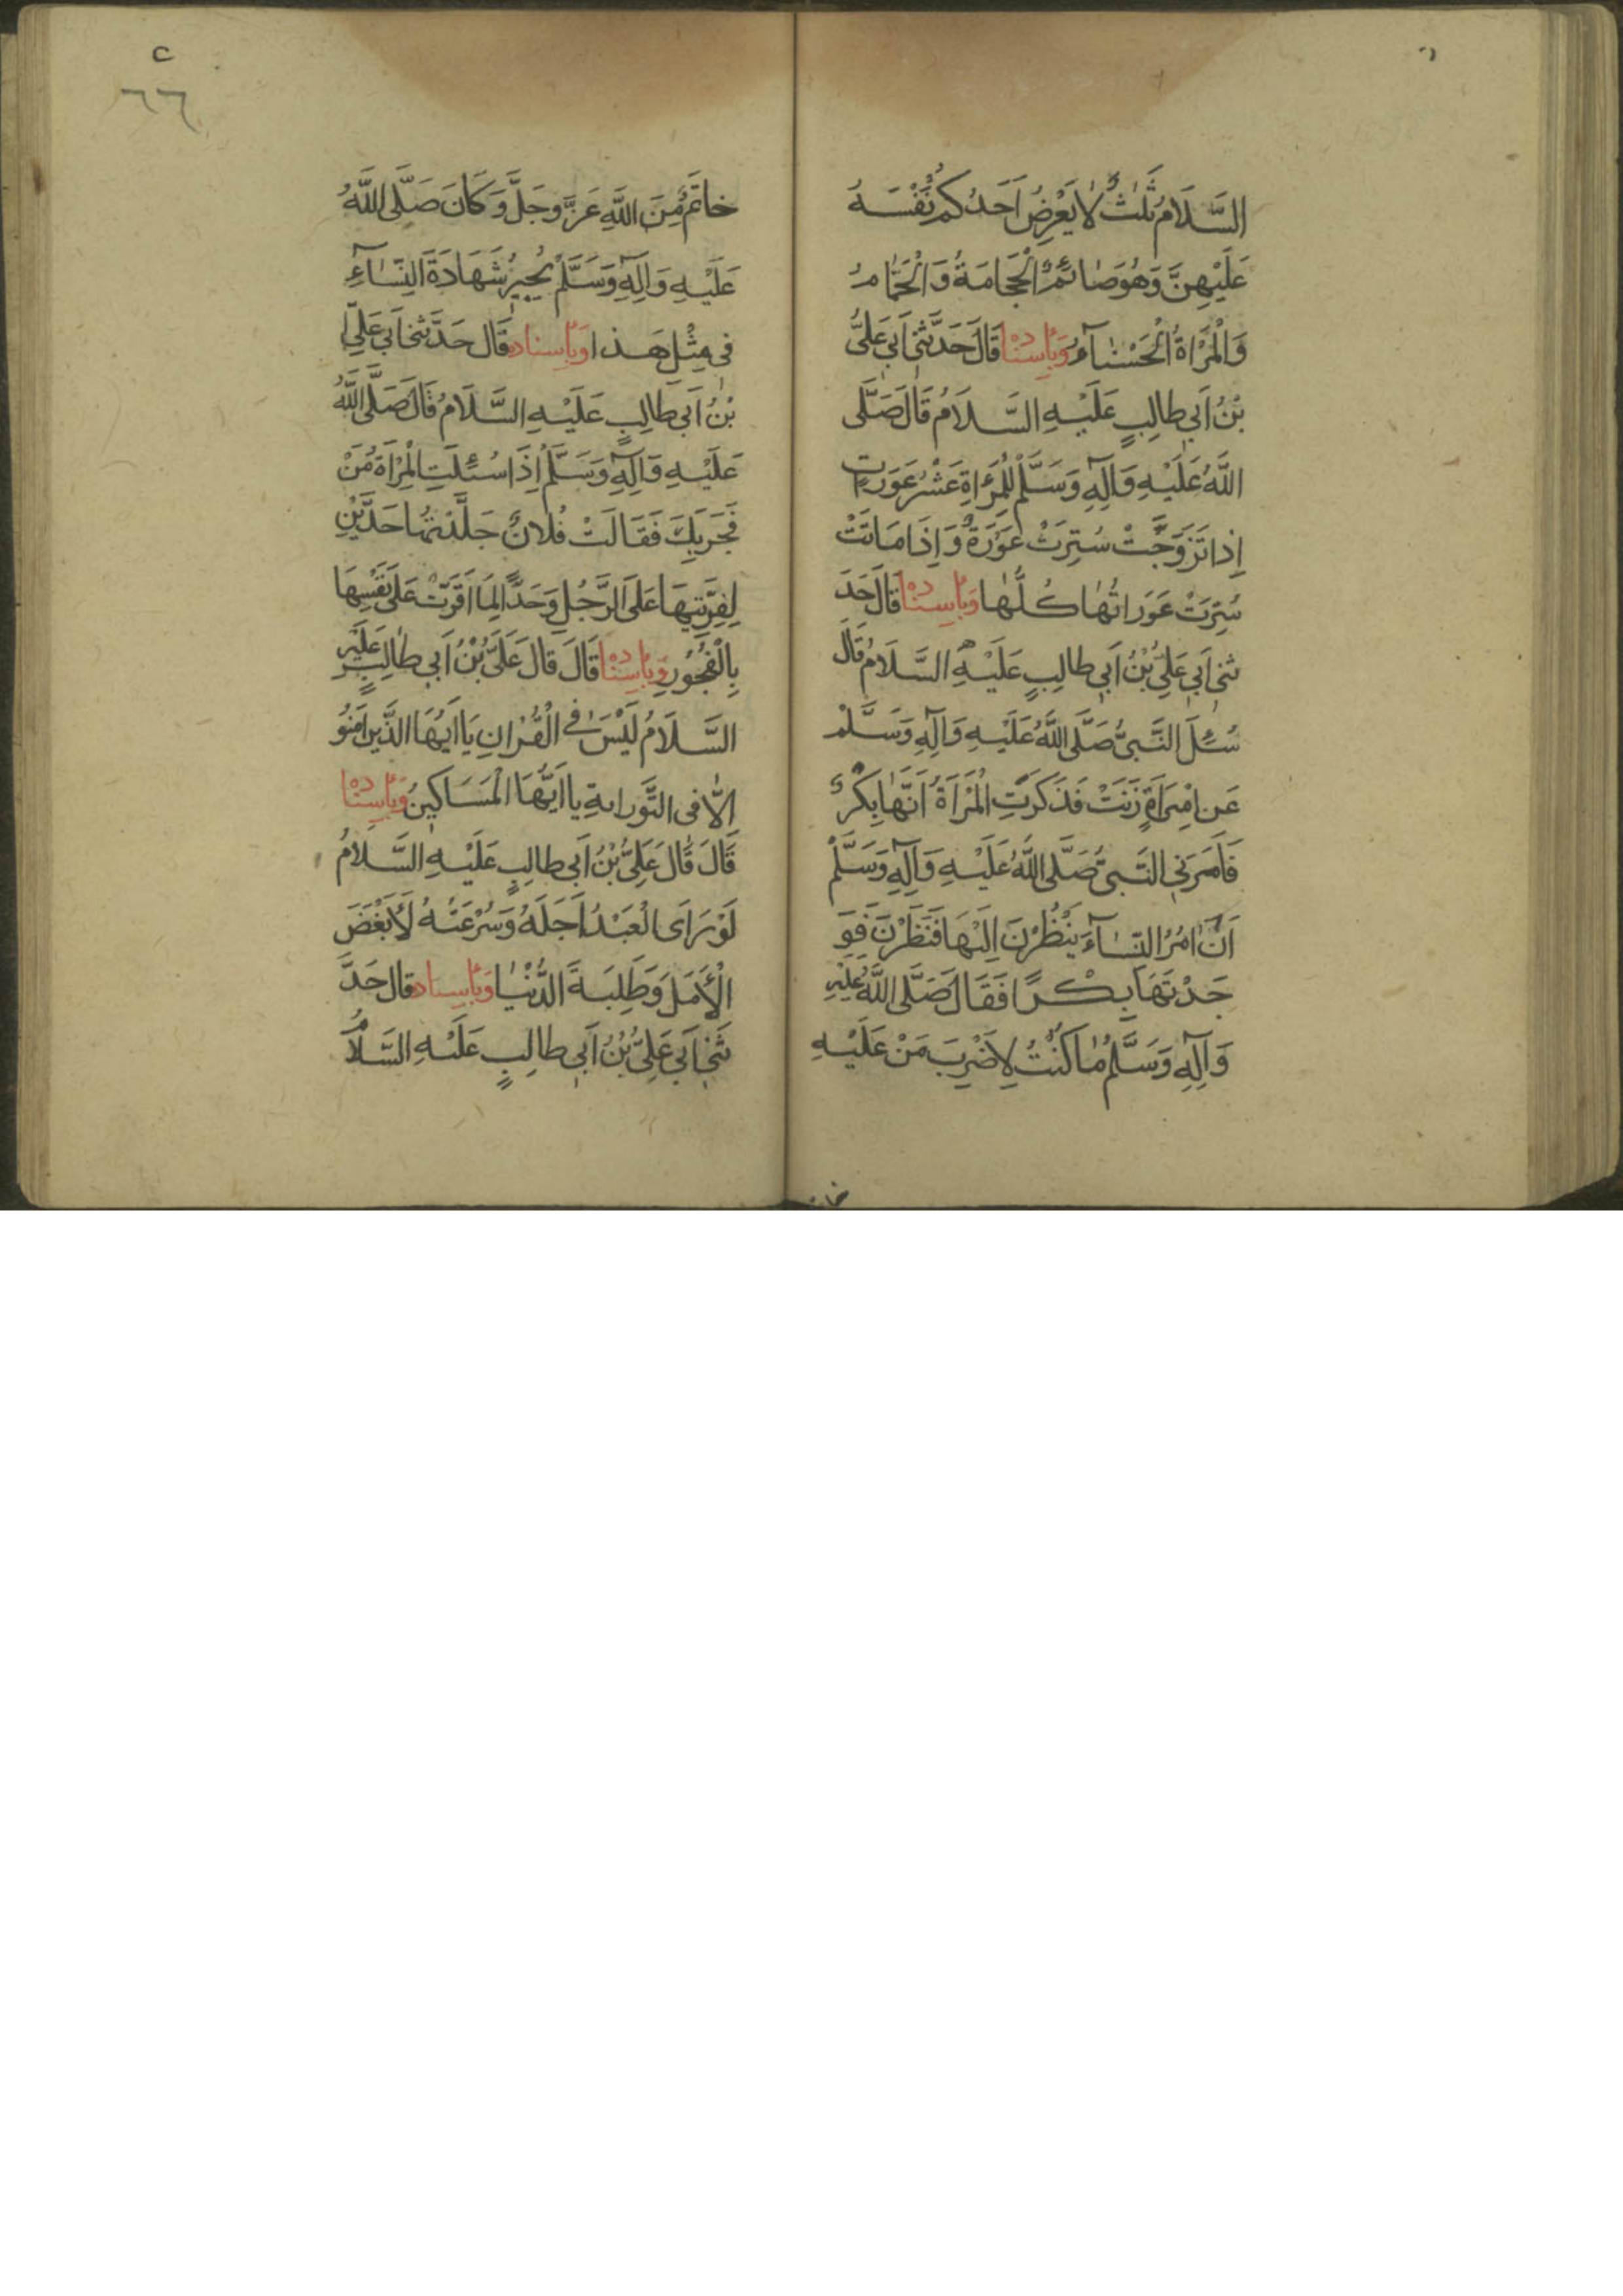 السَّلَامُ ثَلٰثٌ لَا يَعْرِضُ اَحَدُكُمْ نَفْسَهُ
عَلَيْهِنَّ وَهُوَ صَائِمٌ الْحَجَامَةُ وَالْحَمَّامُ
وَالْمَرْاَةُ الْحَسْنَآءُ وَبِاِسْنَادِهٖ قَالَ حَدَّثَنِي اَبِي عَلِيُّ
بْنُ اَبِي طَالِبٍ عَلَيْهِ السَّلَامُ قَالَ صَلَّى
اللَّهُ عَلَيْهِ وَآلِهِ وَسَلَّمَ لِلْمَرْاَةِ عَشْرُ عَوَرَاتٍ
اِذَا تَزَوَّجَتْ سُتِرَتْ عَوْرَةٌ وَاِذَا مَاتَتْ
سُتِرَتْ عَوَرَاتُهَا كُلُّهَا وَبِاِسْنَادِهٖ قَالَ حَدَّ
ثَنِي اَبِي عَلِيُّ بْنُ اَبِي طَالِبٍ عَلَيْهِ السَّلَامُ قَالَ
سُئِلَ النَّبِيُّ صَلَّى اللَّهُ عَلَيْهِ وَآلِهِ وَسَلَّمْ
عَنِ امْرَاَةٍ زَنَتْ فَذَكَرَتِ الْمَرْاَةُ اَنَّهَا بِكْرٌ
فَاَمَرَنِي النَّبِيُّ صَلَّى اللَّهُ عَلَيْهِ وَآلِهِ وَسَلَّمْ
اَنْ اٰمُرَ النِّسَآءَ يَنْظُرْنَ اِلَيْهَا فَنَظَرْنَ فَوَ
جَدْتَهَا بِكْرًا فَقَالَ صَلَّى اللَّهُ عَلَيْهِ
وَآلِهِ وَسَلَّمْ مَا كُنْتُ لِاَضْرِبَ مَنْ عَلَيْهِ
٦٦
خَاتَمٌ مِنَ اللَّهِ عَزَّ وَجَلَّ وَكَانَ صَلَّى اللَّهُ
عَلَيْهِ وَآلِهِ وَسَلَّمْ يُجِيزُ شَهَادَةَ النِّسَآءِ
فِي مِثْلِ هَذَا وَبِاِسْنَادِهِ قَالَ حَدَّثَنِي اَبِي عَلِيُّ
بْنُ اَبِي طَالِبٍ عَلَيْهِ السَّلَامُ قَالَ صَلَّى اللَّهُ
عَلَيْهِ وَآلِهِ وَسَلَّمْ اِذَا سُئِلَتِ الْمَرْاَةُ مَنْ
فَجَرَ بِكَ فَقَالَتْ فُلَانٌ جَلَدْتُهَا حَدَّيْنِ
لِفِرْيَتِهَا عَلَى الرَّجُلِ وَحَدًّا لِمَا اَقَرَّتْ عَلَى نَفْسِهَا
بِالْفُجُورِ وَبِاِسْنَادِهٖ قَالَ قَالَ عَلِيُّ بْنُ اَبِي طَالِبٍ عَلَيْهِ
السَّلَامُ لَيْسَ فِي الْقُرْانِ يَا اَيُّهَا الَّذِينَ اٰمَنُو
اِلَّا فِي التَّوْرَايةِ يَا اَيُّهَا الْمَسَاكِينُ وَبِاِسْنَادِهٖ
قَالَ قَالَ عَلِيُّ بْنُ اَبِي طَالِبٍ عَلَيْهِ السَّلَامُ
لَوْ رَاَى الْعَبْدُ اَجَلَهُ وَسُرْعَتَهُ لَاَبْغَضَ
الْاَمَلَ وَطَلِبَةَ الدُّنْيَا وَبِاِسْنَادِهِ قَالَ حَدَّ
ثَنِي اَبِي عَلِيُّ بْنُ اَبِي طَالِبٍ عَلَيْهِ السَّلَامُ